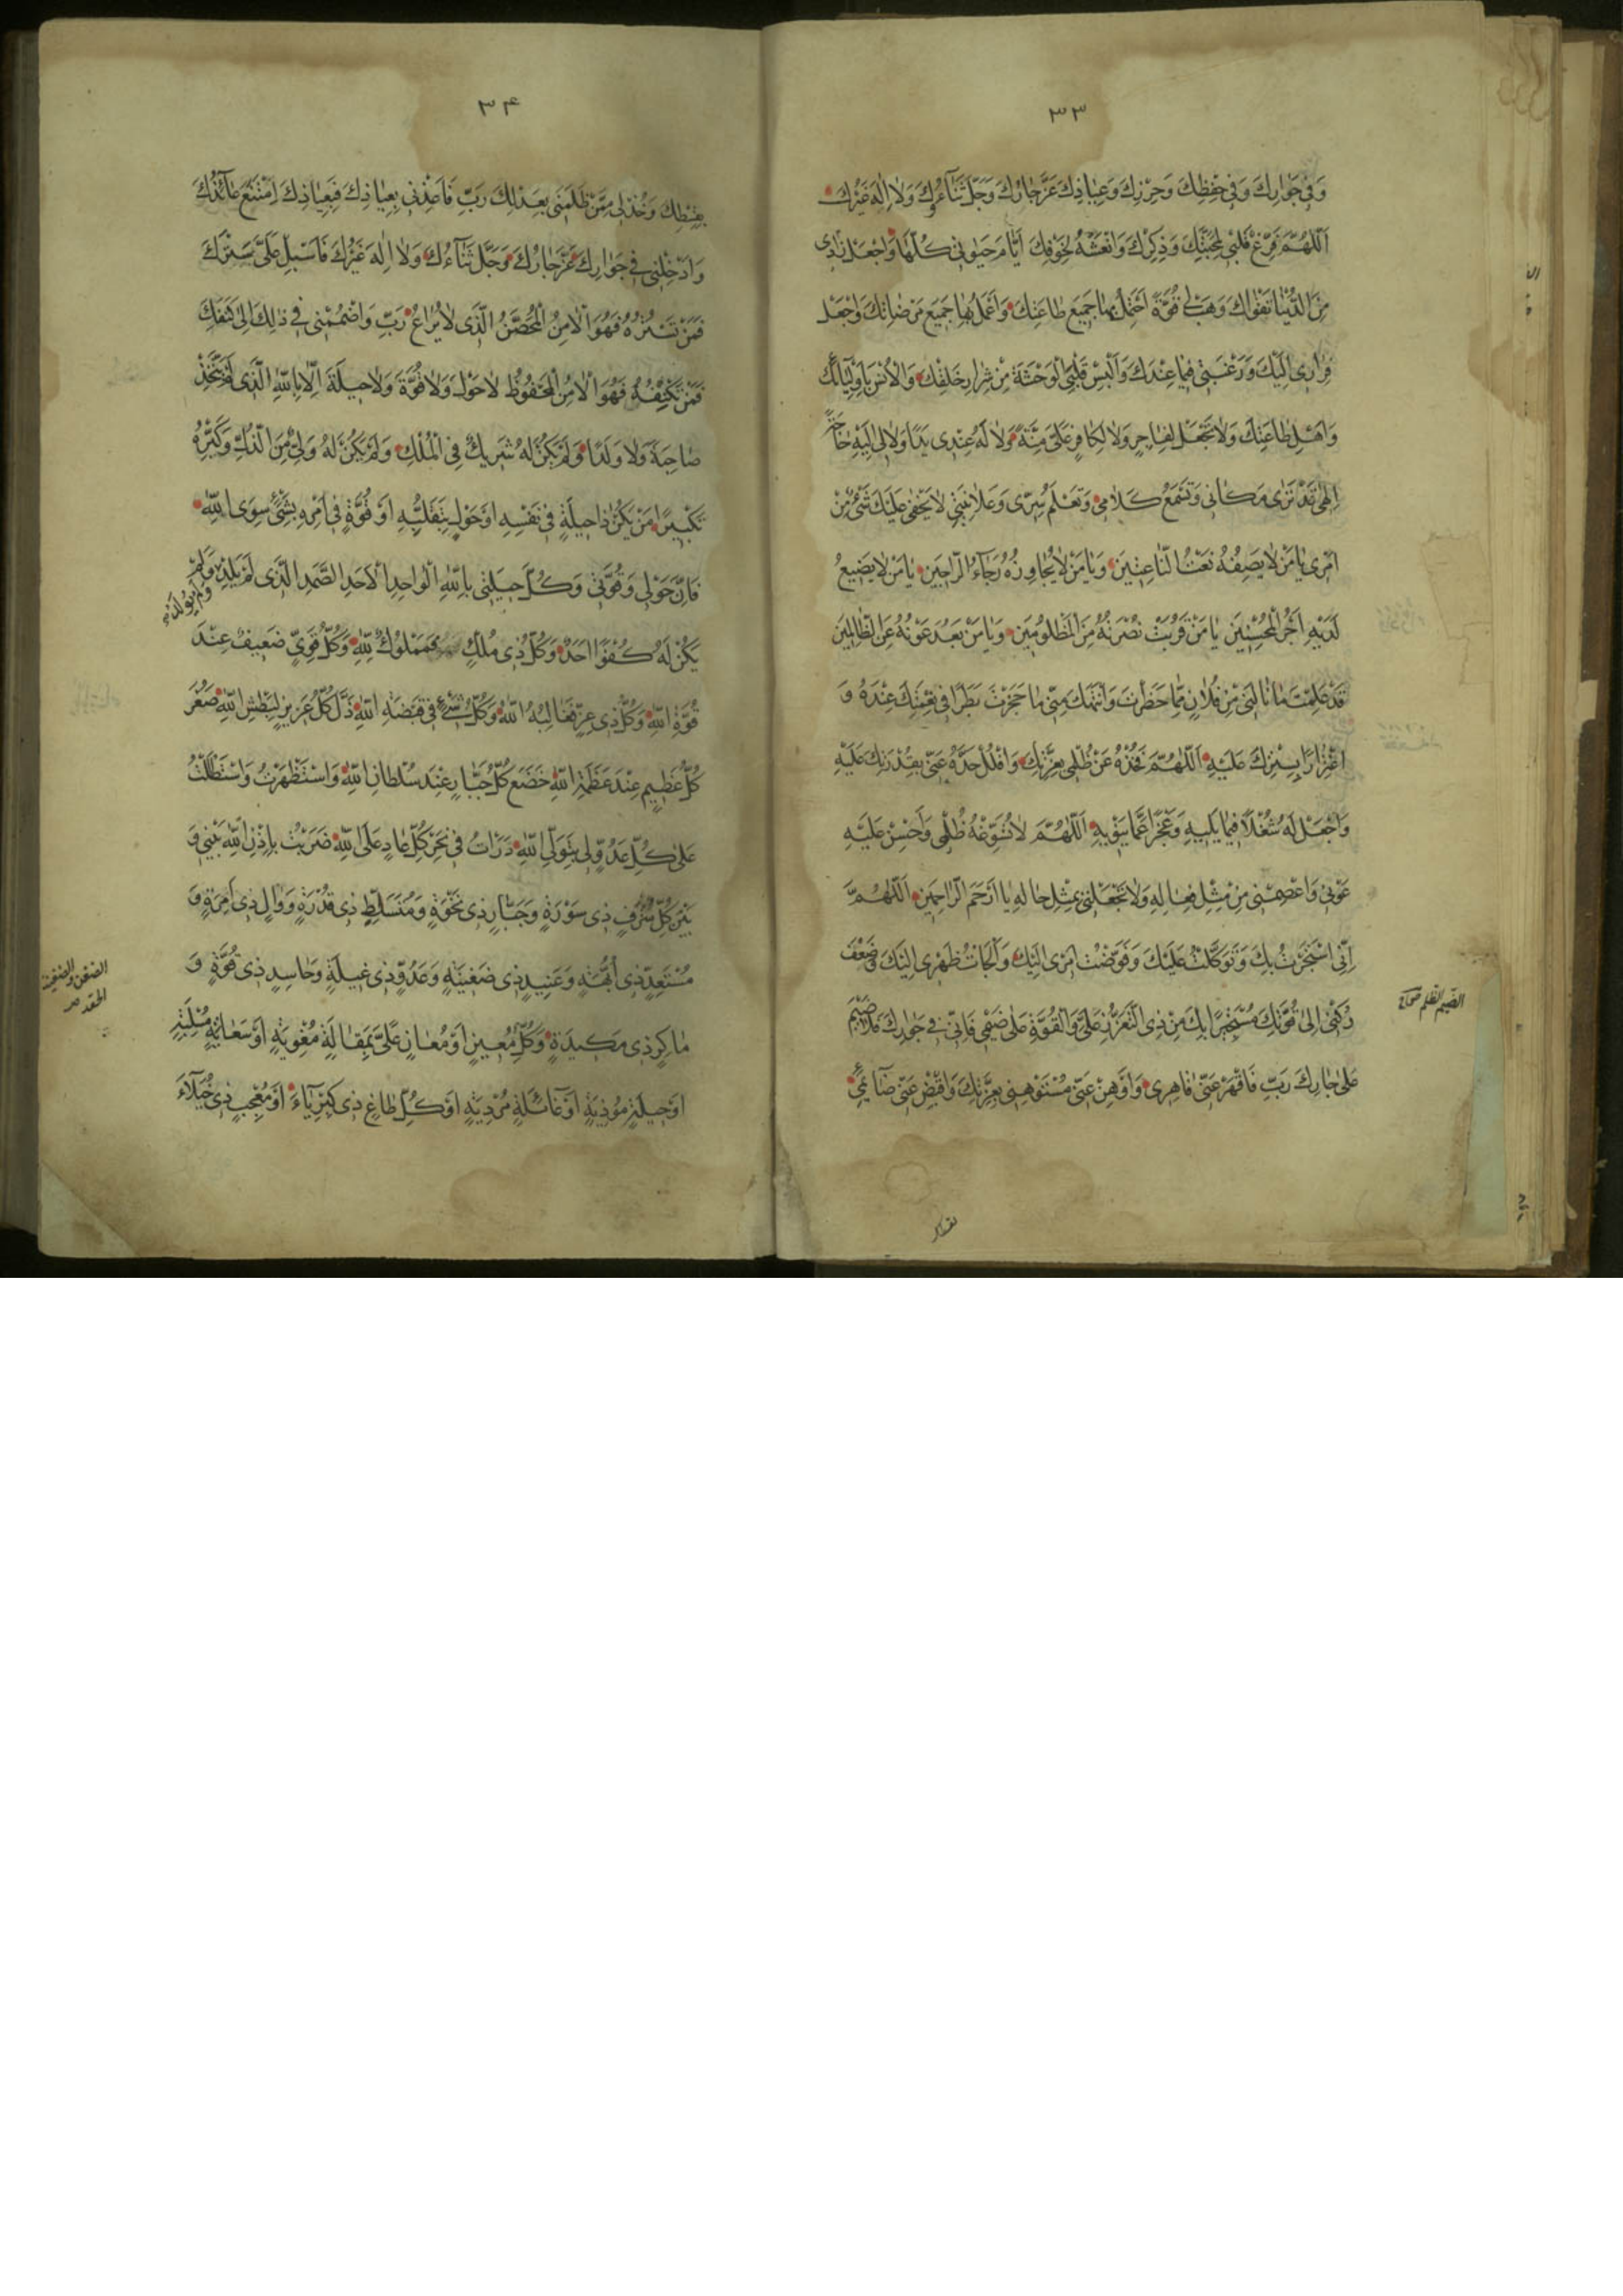 ٣٣
وَفِي جِوَارِكَ وَفِي حِفْظِكَ وَحِرْزِكَ وَعِيَاذِكَ عَزَّ جَارُكَ وَجَلَّ ثَنَآؤُكَ وَلَا اِلٰهَ غَيْرُكَ
اَللّٰهُمَّ فَرِّغْ قَلْبِي لِمَحَبَّتِكَ وَذِكْرِكَ وَانْعَشْهُ لِخَوْفِكَ اَيَّامَ حَيٰوتِي كُلِّهَا وَاجْعَلْ زَادِي
مِنَ الدُّنْيَا تَقْوَاكَ وَهَبْ لِي قُوَّةً اَحْتَمِلُ بِهَا جَمِيعَ طَاعَتِكَ وَاَعْمَلُ بِهَا جَمِيعَ مَرْضَاتِكَ وَاجْعَلْ
فِرَارِي اِلَيْكَ وَرَغْبَتِي فِيمَا عِنْدَكَ وَاَلْبِسْ قَلْبِيَ الْوَحْشَةَ مِنْ شِرَارِ خَلْقِكَ وَالْاُنْسَ بِاَوْلِيَآئِكَ
وَاَهْلِ طَاعَتِكَ وَلَا تَجْعَلْ لِفَاجِرٍ وَلَا لِكَافِرٍ عَلَيَّ مِنَّةً وَلَا لَهُ عِنْدِي يَدًا وَلَا لِي اِلَيْهِ حَاجَةً
اِلٰهِي قَدْ تَرٰى مَكَانِي وَتَسْمَعُ كَلَامِي وَتَعْلَمُ سِرِّي وَعَلَانِيَتِي لَا يَخْفٰى عَلَيْكَ شَيْءٌ مِنْ
اَمْرِي يَا مَنْ لَا يَصِفُهُ نَعْتُ النَّاعِتِينَ وَيَا مَنْ لَا يُجَاوِزُهُ رَجَآءُ الرَّاجِينَ يَا مَنْ لَا يَضِيعُ
لَدَيْهِ اَجْرُ الْمُحْسِنِينَ يَا مَنْ قَرُبَتْ نُصْرَتُهُ مِنَ الْمَظْلُومِينَ وَيَا مَنْ بَعُدَ عَوْنُهُ عَنِ الظَّالِمِينَ
قَدْ عَلِمْتَ مَا نَالَنِي مِنْ فُلَانٍ مِمَّا حَظَرْتَ وَانْتَهَكَ مِنِّي مَا حَجَزْتَ بَطَرًا فِي نِعْمَتِكَ عِنْدَهُ وَ
اغْتِرَارًا بِسِتْرِكَ عَلَيْهِ اَللّٰهُمَّ فَخُذْهُ عَنْ ظُلْمِي بِعِزَّتِكَ وَافْلُلْ حَدَّهُ عَنِّي بِقُدْرَتِكَ عَلَيْهِ
وَاجْعَلْ لَهُ شُغْلًا فِيمَا يَلِيهِ وَعَجْزًا عَمَّا يَنْوِيهِ اَللّٰهُمَّ لَا تُسَوِّغْهُ ظُلْمِي وَاَحْسِنْ عَلَيْهِ
عَوْنِي وَاعْصِمْنِي مِنْ مِثْلِ فِعَالِهِ وَلَا تَجْعَلْنِي بِمِثْلِ حَالِهِ يَا اَرْحَمَ الرَّاحِمِينَ اَللّٰهُمَّ
اِنِّي اسْتَجَرْتُ بِكَ وَتَوَكَّلْتُ عَلَيْكَ وَفَوَّضْتُ اَمْرِي اِلَيْكَ وَاَلْجَاْتُ ظَهْرِي اِلَيْكَ وَضَعْفَ
رُكْنِي اِلٰى قُوَّتِكَ مُسْتَجِيرًا بِكَ مِنْ ذِي التَّعَزُّزِ عَلَيَّ وَالْقُوَّةِ عَلٰى ضَيْمِي فَاِنِّي فِي جِوَارِكَ فَلَا ضَيْمَ
عَلٰى جَارِكَ رَبِّ فَاقْهَرْ عَنِّي قَاهِرِي وَاَوْهِنْ عَنِّي مُسْتَوْهِنِي بِعِزَّتِكَ وَاقْبِضْ عَنِّي ضَآئِمِي
الضيم الظلم
٣۴
بِقِسْطِكَ وَخُذْ لِي مِمَّنْ ظَلَمَنِي بِعَدْلِكَ رَبِّ فَاَعِذْنِي بِعِيَاذِكَ فَبِعِيَاذِكَ اِمْتَنَعَ عَآئِذُكَ
وَاَدْخِلْنِي فِي جِوَارِكَ عَزَّ جَارُكَ وَجَلَّ ثَنَآءُكَ وَلَا اِلٰهَ غَيْرُكَ فَاَسْبِلْ عَلَيَّ سِتْرَكَ
فَمَنْ تَسْتُرْهُ فَهُوَ الْاٰمِنُ الْمُحَصَّنُ الَّذِي لَا يُرَاعُ رَبِّ وَاضْمُمْنِي فِي ذٰلِكَ اِلٰى كَنَفِكَ
فَمَنْ تَكْنُفْهُ فَهُوَ الْاٰمِنُ الْمَحْفُوظُ لَا حَوْلَ وَلَا قُوَّةَ وَلَا حِيلَةَ اِلَّا بِاللّٰهِ الَّذِي لَمْ يَتَّخِذْ
صَاحِبَةً وَلَا وَلَدًا وَلَمْ يَكُنْ لَهُ شَرِيكٌ فِي الْمُلْكِ وَلَمْ يَكُنْ لَهُ وَلِيٌّ مِنَ الذُّلِّ وَكَبِّرْهُ
تَكْبِيرًا مَنْ يَكُنْ ذَا حِيلَةٍ فِي نَفْسِهِ اَوْ حَوْلٍ بِتَقَلُّبِهِ اَوْ قُوَّةٍ فِي اَمْرِهِ بِشَيْءٍ سِوَى اللّٰهِ
فَاِنَّ حَوْلِي وَقُوَّتِي وَكُلَّ حِيلَتِي بِاللّٰهِ الْوَاحِدِ الْاَحَدِ الصَّمَدِ الَّذِي لَمْ يَلِدْ وَلَمْ يُولَدْ وَلَمْ
يَكُنْ لَهُ كُفُوًا اَحَدٌ وَكُلُّ ذِي مُلْكٍ فَمَمْلُوكٌ لِلّٰهِ وَكُلُّ قَوِيٍّ ضَعِيفٌ عِنْدَ
قُوَّةِ اللّٰهِ وَكُلُّ ذِي عِزٍّ فَغَالِبُهُ اللّٰهُ وَكُلُّ شَيْءٍ فِي قَبْضَةِ اللّٰهِ ذَلَّ كُلُّ عَزِيزٍ لِبَطْشِ اللّٰهِ صَغُرَ
كُلُّ عَظِيمٍ عِنْدَ عَظَمَةِ اللّٰهِ خَضَعَ كُلُّ جَبَّارٍ عِنْدَ سُلْطَانِ اللّٰهِ وَاسْتَظْهَرْتُ وَاسْتَطَلْتُ
عَلٰى كُلِّ عَدُوٍّ لِي بِتَوَلِّي اللّٰهِ دَرَاْتُ فِي نَحْرِ كُلِّ عَادٍ عَلَيَّ اللّٰهِ ضَرَبْتُ بِاِذْنِ اللّٰهِ بَيْنِي وَ
بَيْنَ كُلِّ مُتْرَفٍ ذِي سَوْرَةٍ وَجَبَّارٍ ذِي نَخْوَةٍ وَمُتَسَلِّطٍ ذِي قُدْرَةٍ وَوَالٍ ذِي اِمْرَةٍ وَ
مُسْتَعِدٍّ ذِي اُبَّهَةٍ وَعَنِيدٍ ذِي ضَغِينَةٍ وَعَدُوٍّ ذِي غِيلَةٍ وَحَاسِدٍ ذِي قُوَّةٍ وَ
مَاكِرٍ ذِي مَكِيدَةٍ وَكُلِّ مُعِينٍ اَوْ مُعَانٍ عَلَيَّ بِمَقَالَةٍ مُغْوِيَةٍ اَوْ سِعَايَةٍ مُسْلِبَةٍ
اَوْ حِيلَةٍ مُوذِيَةٍ اَوْ غَآئِلَةٍ مُرْدِيَةٍ اَوْ كُلِّ طَاغٍ ذِي كِبْرِيَآءَ اَوْ مُعْجِبٍ ذِي خُيَلَآءَ
الضغن والضغينة
الحقد